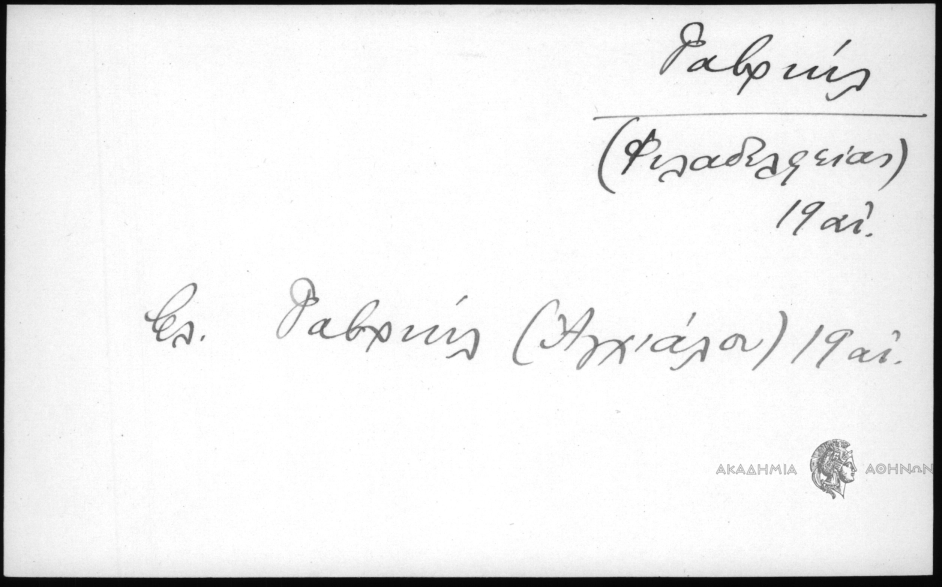 Γαβριήλ
(Φιλαδελφείας)
19 αἰ.
Βλ. Γαβριήλ (Ἀγχιάλου) 19 αἰ.
ΑΚΑΔΗΜΙΑ ΑΘΗΝΩΝ